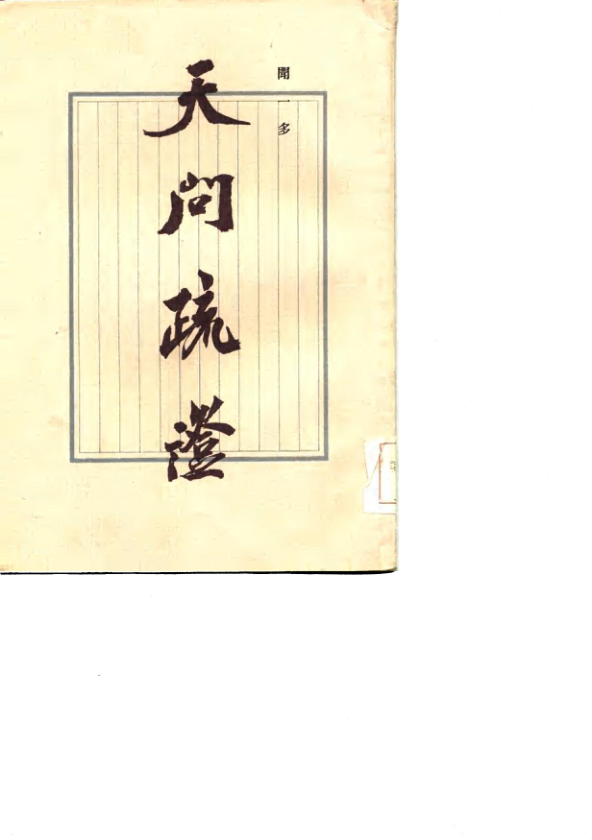 聞一多
天問疏證